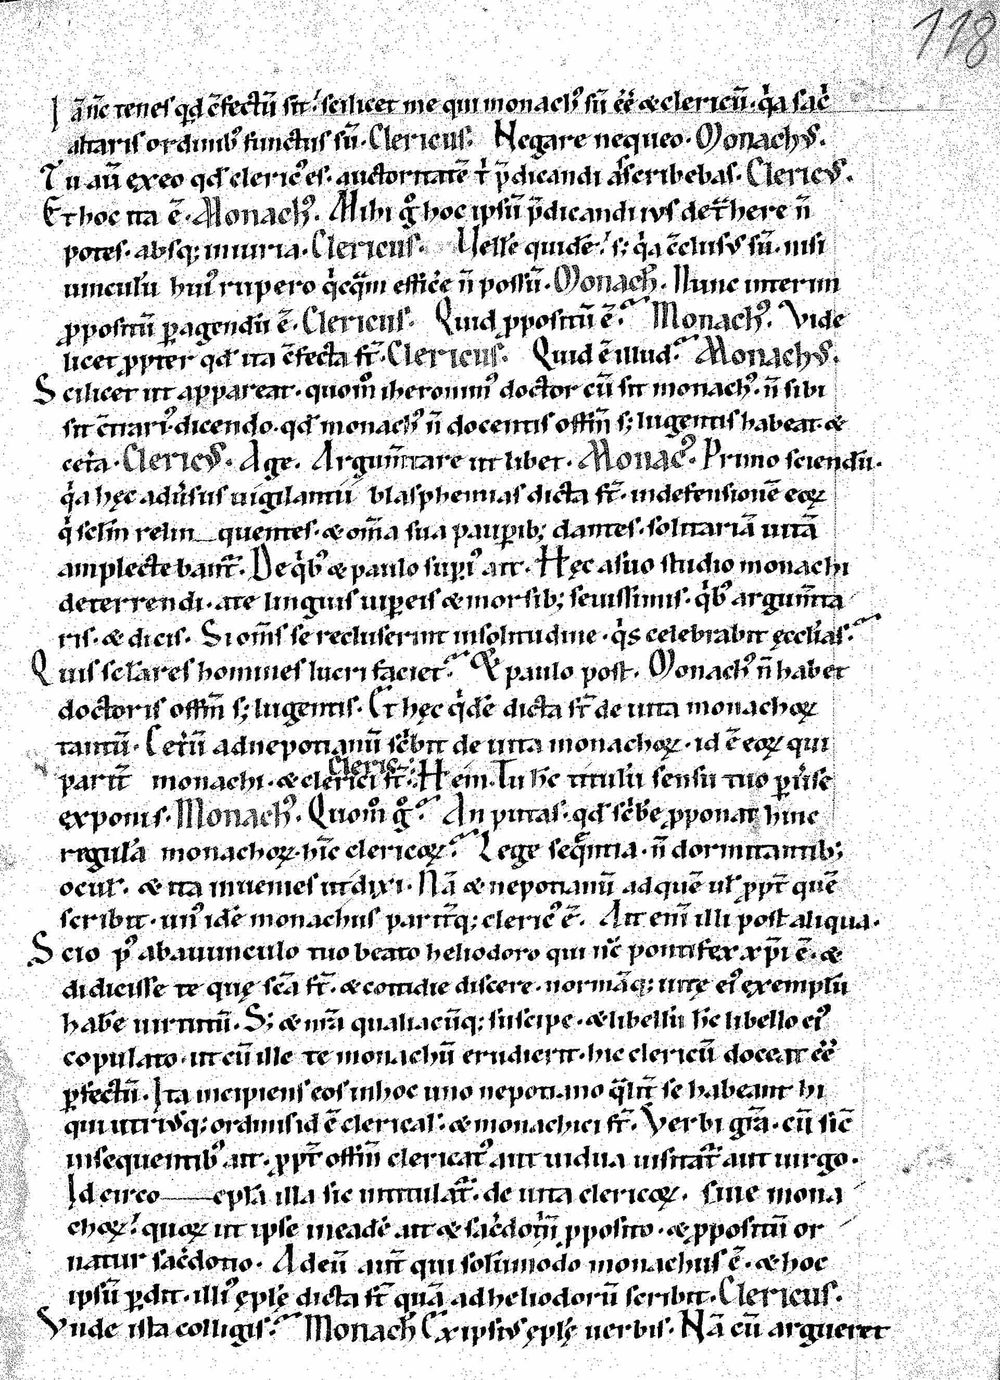 118
Iã nc̄ tenes qd ēfectū sit. scilicet me qui monachꝰ sū ēē & clericū. q̇a sac̄
altaris ordinibꝰ functus sū. Clericus. Negare nequeo. Monachꝰ.
Tu aū ex eo qd clericꝰ es. auctoritatē t̄ p̄dicandi ascribebas. Clericꝰ.
Et hoc ita ē. Monachꝰ. Mihi g̊ hoc ipsū p̄dicandi ius det̄here n̄
potes. absq; iniuria. Clericus. Uelle quidē. s; q̇a c̄clusus sū. nisi
uinculū huiꝰ rupero q̇cq̄m efficē n̄ possū. Monachꝰ. Nunc interim
ꝓpositū ꝑagendū ē. Clericus. Quid ꝓpositū ē. Monachꝰ. Vide
licet ꝓpter qd ita ēfecta st̄. Clericus. Quid ē illud. Monachꝰ.
Scilicet ut appareat. quom̄ iheronimꝰ doctor cū sit monachꝰ. n̄ sibi
sit c̄triariꝰ dicendo. qd monachꝰ n̄ docentis offm̄ s; lugentis habeat. &
cet̄a. Clericꝰ. Age. Argum̄tare ut libet. Monacꝰ. Primo sciendū.
q̇a hęc adūsus uigilantiū blasphemias dicta st̄. in defensionē eoꝝ
q̇ sclm̄ relin quentes. & om̄a sua pauꝑib; dantes. solitariā uitā
amplectebant̄. De q̇bꝰ & paulo supiꝰ ait. Hęc a suo studio monachi
deterrendi. a te linguis uiꝑeis & morsib; seuissimis. q̇bꝰ argum̄ta
ris. & dicis. Si om̄s se recluserint in solitudine. q̇s celebrabit ęcclias.
Quis sclares homines lucri faciet. & paulo post. Monachꝰ n̄ habet
doctoris offm̄ s; lugentis. Et hęc q̇dē dicta st̄ de uita monachoꝝ
tantū. Cet̄ū ad nepotianū sc̄bit de uita monachoꝝ. id ē eoꝝ qui
parit̄ monachi. & clerici st̄. Cleric. Hem. Tu hc̄ titulū sensu tuo ꝑuse
exponis. Monachꝰ. Quom̄ g̊. An putas. qd sc̄be ꝓponat hinc
regulā monachoꝝ. hīc clericoꝝ. Lege seq̄ntia. n̄ dormitantib;
oculꝭ. & ita inuenies ut dixi. Nā & nepotianū ad quē uł ꝓpt̄ quē
scribit. unꝰ idē monachus parit̄q; clericꝰ ē. Ait enī illi post aliqua.
Scio p̊ ab auunculo tuo beato heliodoro qui nc̄ pontifex xp̄i ē. &
didicisse te quę sc̄a st̄. & cottidie discere. normāq; uitę eiꝰ exemplū
habe uirtutū. S; & nr̄a qualiacūq; suscipe. & libellū hc̄ libello eiꝰ
copulato. ut cū ille te monachū erudierit. hic clericū doceat ēē
ꝑfectū. Ita incipiens eos in hoc uno nepotiano q̄lit̄ se habeant hi
qui utriusq; ordinis id ē clericalꝭ. & monachici st̄. Verbi grā. cū sic̄
in sequentibꝰ ait. ꝓpt̄ offm̄ clericatꝰ aut uidua uisitat̄ aut uirgo.
Idcirco epl̄a illa sic intitulat̄. de uita clericoꝝ. siue mona
choꝝ. quoꝝ ut ipse in eadē ait & sac̄dotm̄ ꝓposito. & ꝓpositū or
natur sac̄dotio. Ad eū aut̄ qui solūmodo monachus ē. & hoc
ipsū ꝑdit. illiꝰ ęplę dicta st̄ quā ad heliodorū scribit. Clericus.
Vnde ista colligis. Monach Ex ipsius ęplę uerbis. Nā cū argueret